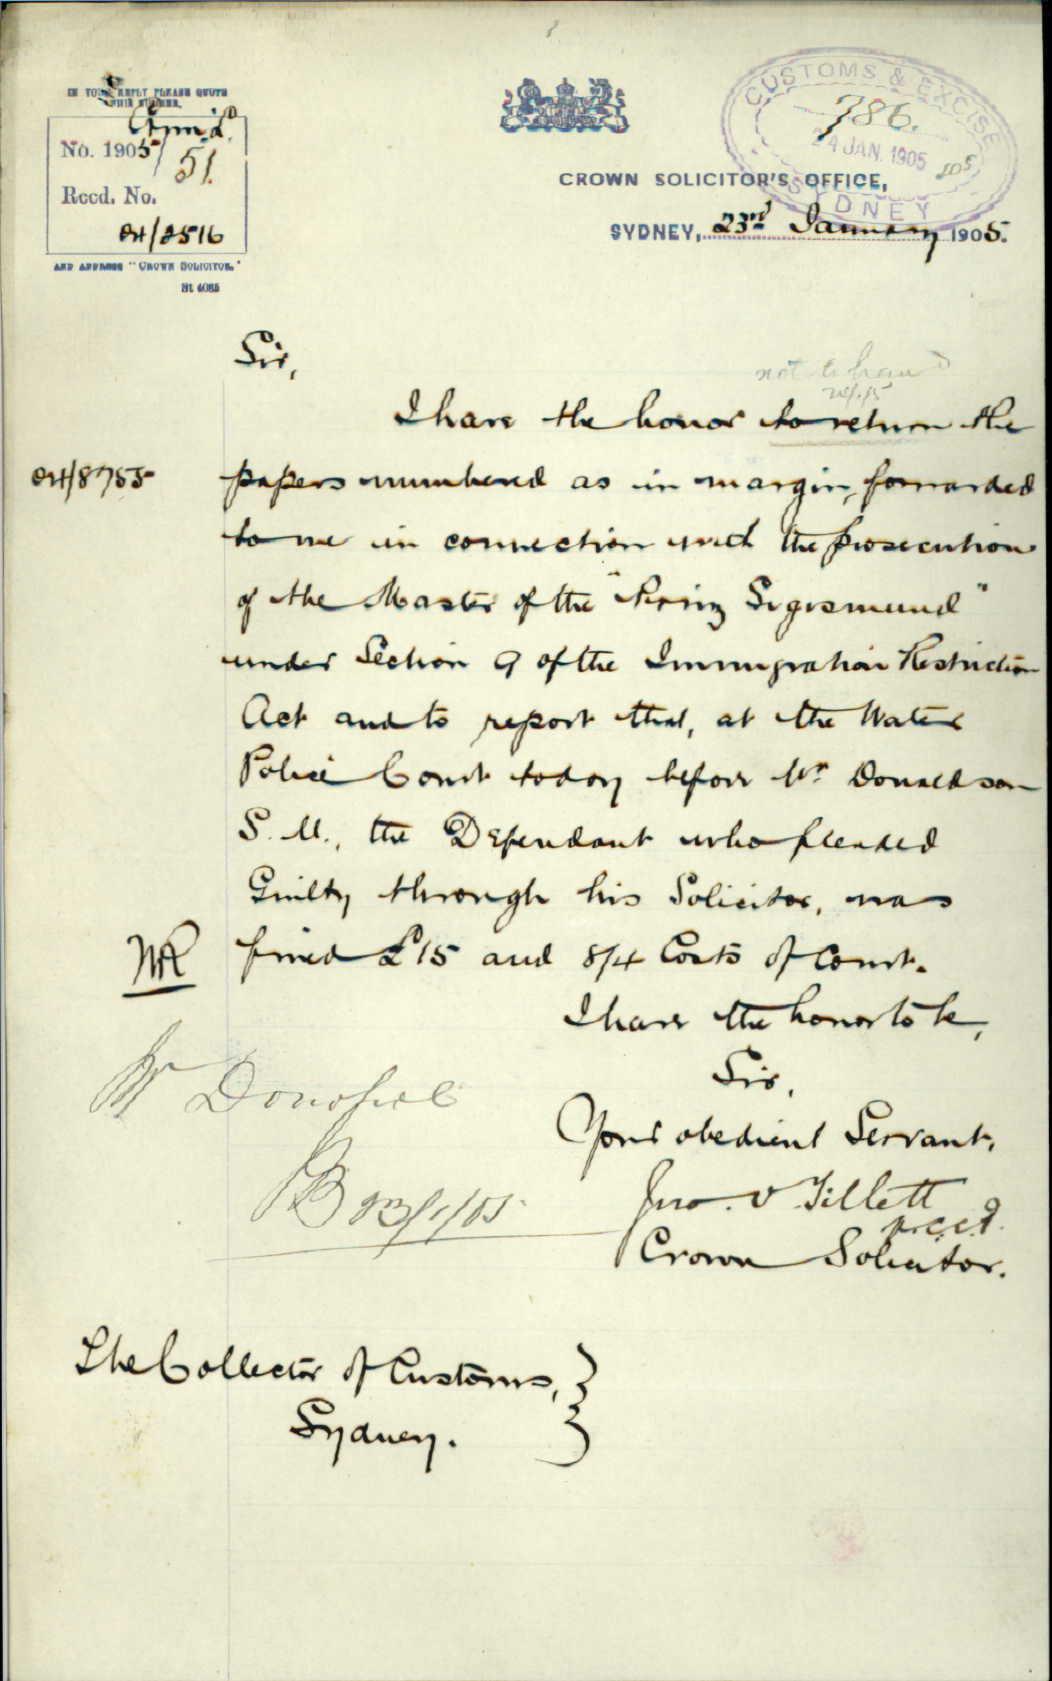 IN YOUR REPLY PLEASE QUOTE
THIS NUMBER.
No. 1905/51.
Recd. No.
04/2516
AND ADDRESS "CROWN SOLICITOR."
St 4085
CUSTOMS & EXCISE
786.
24 JAN. 1905
SYDNEY
CROWN SOLICITOR'S OFFICE,
SYDNEY, 23rd January 1905.
Sir,
not to hand
I have the honor to return the
04/8755
papers numbered as in margin, forwarded
to me in connection with the prosecution
of the Master of the "Prinz Sigismund"
under Section 9 of the Immigration Restriction
Act and to report that, at the Water
Police Court today before Mr Donaldson
S. M., the Defendant who pleaded
Guilty through his Solicitor, was
fined £15 and 8/4 Costs of Court.
I have the honor to be,
Sir,
Your obedient Servant,
Jno. V Tillett
Crown Solicitor.
Mr Donohue
23/1/05
The Collector of Customs,
Sydney.